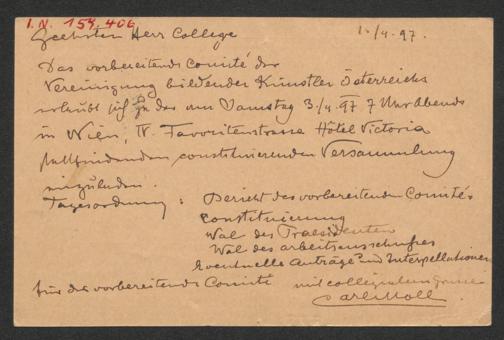 I.N. 154.406
Geehrter Herr College
1./4.97.
Das vorbereitende Comité der
Vereinigung bildender Künstler Österreichs
erlaubt sich zu der am Samstag 3./4.97 7 Uhr Abends
in Wien, IV. Favoritenstrasse Hôtel Victoria
stattfindenden constituirenden Versammlung
einzuladen.
Tagesordnung: Bericht des vorbereitenden Comités
Constituirung
Wal des Praesidenten
Wal des Arbeitsausschusses
Eventuelle Anträge und Interpellationen
für das vorbereitende Comité mit collegialem Grusse
Carl Moll